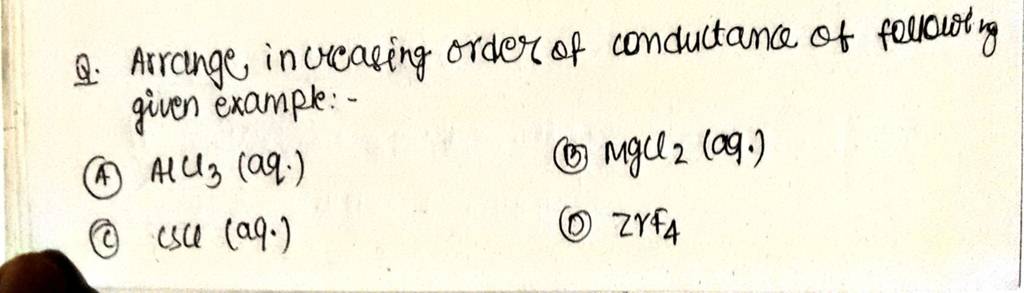 Q. Arrange, increasing order of conductance of following
given example: -
(A) AlCl3 (aq.)
(B) MgCl2 (aq.)
(C) CsCl (aq.)
(D) ZrF4